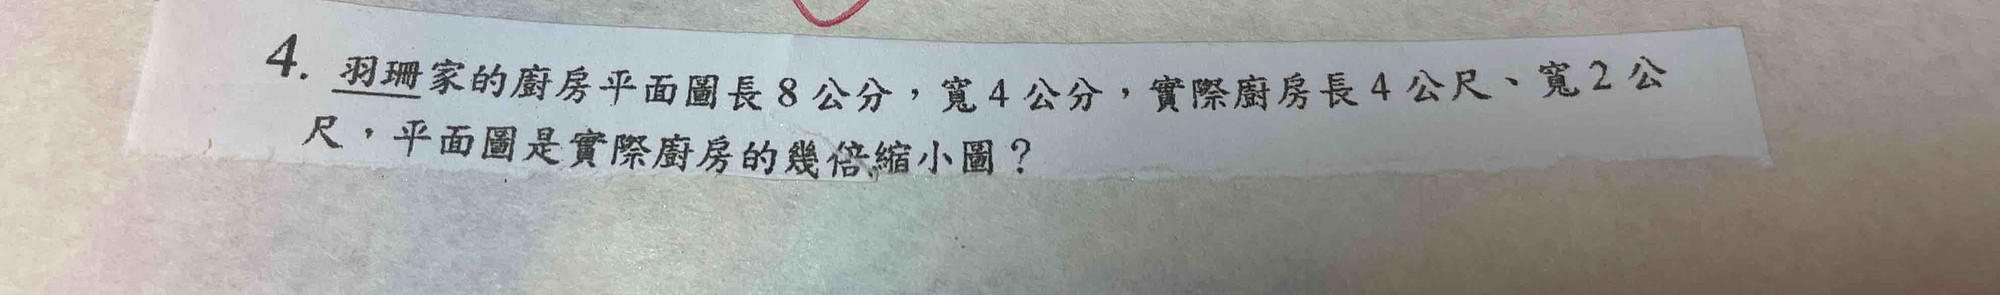 4. 羽珊家的廚房平面圖長8公分，寬4公分，實際廚房長4公尺、寬2公
尺，平面圖是實際廚房的幾倍縮小圖？